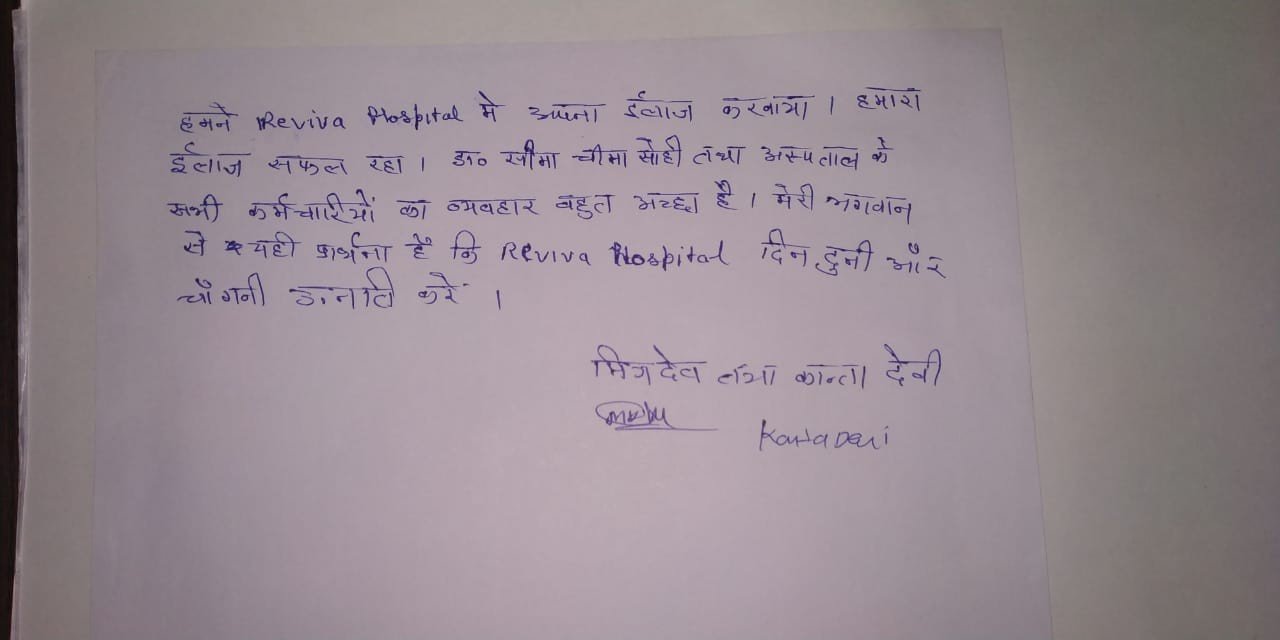 हमने Reviva Hospital मे अपना ईलाज करवाया । हमारा
ईलाज सफल रहा । डा० सीमा चीमा सोही तथा अस्पताल के
सभी कर्मचारियों का व्यवहार बहुत अच्छा है । मेरी भगवान
से यही प्रार्थना है कि Reviva Hospital दिन दुनी और
चौगनी उन्नति करें ।
मित्रदेव तथा कान्ता देवी
Kanta Devi